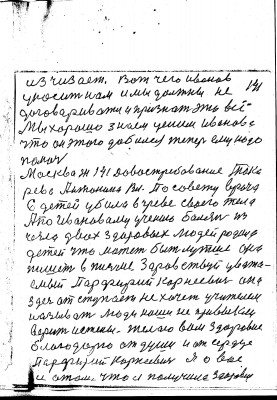 изчизает. Вот чего иванов
уроситнам имы должны не 191
договариват и признат это всё -
Мы хорошо знаем ценим Иванова
что он этого добился теперь ему надо
помоч
Москва Ж 191 довостребование Тока
рева Антонина Ви. По совету врача
6 детей убила в чреве своего тела
А по Ивановаму учению
числа двоих здоровых людей родила
детей что может быт лутше она
пишет в писме Здравствуй уважа-
емый Парфирий Корнеевич она
здес отступает не хочет учителем
называт люди наши не привыкли
верит истении. желаю вам здоровие
благодарю от души и от сердце
Парфирий Корнеевич я о вас
и о том что я получила здоровие